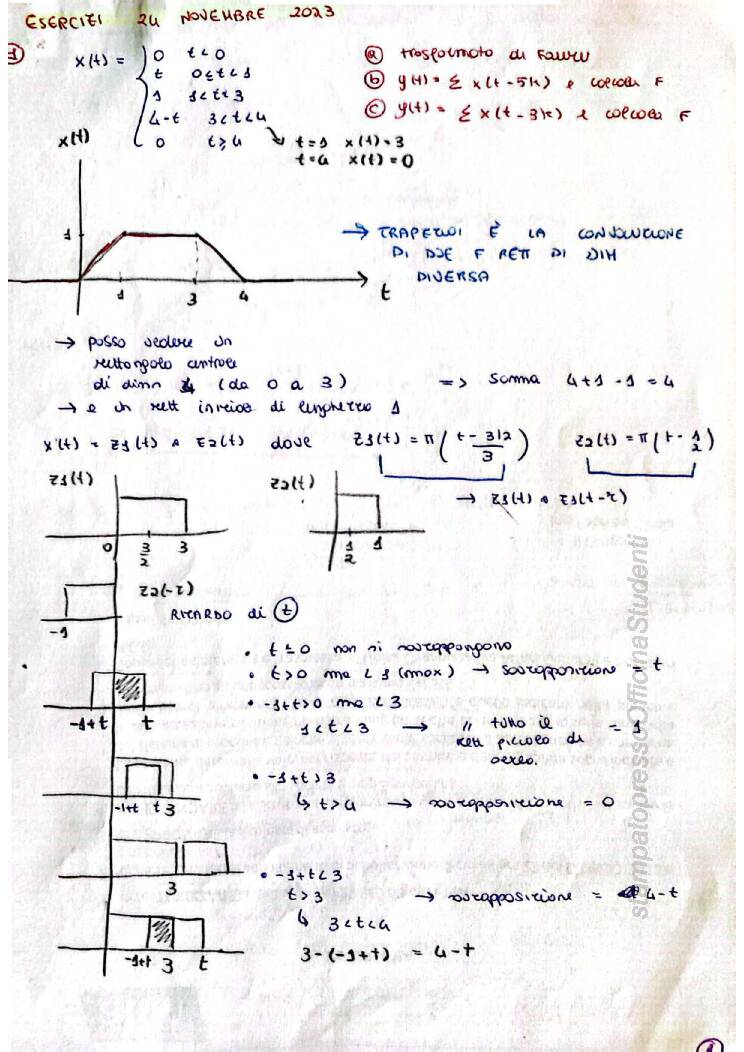 ESERCIZI 24 NOVEMBRE 2023
1
x(t) = { 0 t<0
t 0≤t<1
1 1<t<3
4-t 3<t<4
0 t≥4
ⓐ trasformata di Fourier
ⓑ y(t) = Σ x(t-5k) e calcola F
ⓒ y(t) = Σ x(t-3k) e calcola F
↘ t=1 x(t)=3
t=4 x(t)=0
x(t)
1
1 3 4 t
→ TRAPEZOI È LA CONVOLUZIONE
DI DUE F RETT DI DIM
DIVERSA
→ posso vedere un
rettangolo centrale
di dimn 4 (da 0 a 3) => somma 4+1-1 = 4
→ e un rett iniziale di lunghezza 1
x(t) = z1(t) * z2(t) dove z1(t) = π(t-3/2 / 3) z2(t) = π(t-1/2)
→ z1(t) * z1(t-τ)
z1(t)
0 3/2 3
z2(t)
1/2 1
z2(-τ)
-1
RITARDO di ⓣ
• t≤0 non si sovrappongono
• t>0 ma <1 (max) → sovrapposizione = t
-1+t t
• -1+t>0 ma <3
1<t<3 → // tutto il = 1
rett piccolo di
aerea.
-1+t t 3
• -1+t>3
↳ t>4 → sovrapposizione = 0
3
• -1+t<3
t>3 → sovrapposizione = 4-t
↳ 3<t<4
-1+t 3 t
3-(-1+t) = 4-t
stampatopressoOfficinaStudenti
1